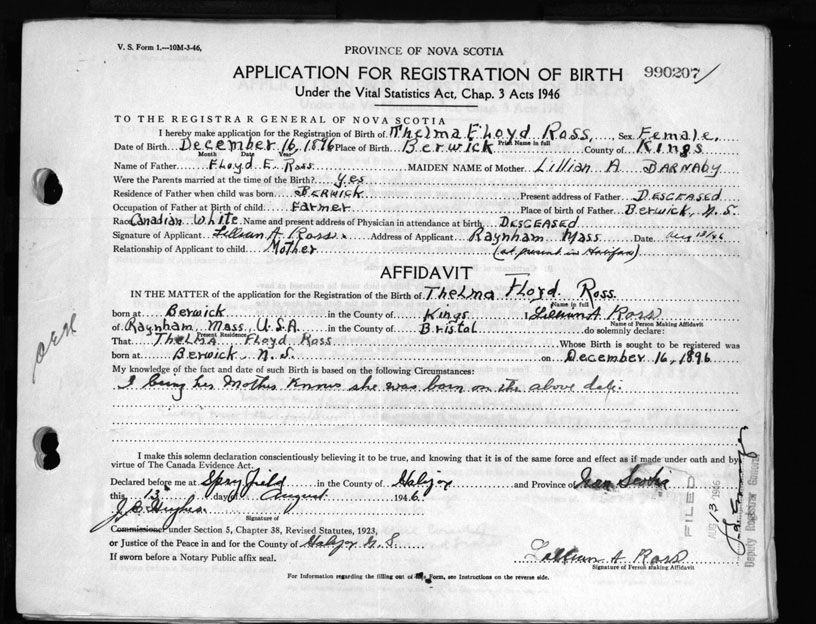 V. S. Form 1.—10M-3-46,
PROVINCE OF NOVA SCOTIA
APPLICATION FOR REGISTRATION OF BIRTH 990207
Under the Vital Statistics Act, Chap. 3 Acts 1946
TO THE REGISTRAR GENERAL OF NOVA SCOTIA
I hereby make application for the Registration of Birth of Thelma Floyd Ross, Sex Female,
Print Name in full
Date of Birth December 16, 1896 Place of Birth Berwick County of Kings
Month Date Year
Name of Father Floyd E. Ross MAIDEN NAME of Mother Lillian A BARNABY
Were the Parents married at the time of the Birth? Yes
Residence of Father when child was born BERWICK Present address of Father DESCEASED
Occupation of Father at Birth of child Farmer Place of birth of Father Berwick, N. S.
Race Canadian White Name and present address of Physician in attendance at birth DESCEASED
Signature of Applicant Lillian A. Ross Address of Applicant Raynham Mass Date Aug 13/46
Relationship of Applicant to child Mother (at present in Halifax)
AFFIDAVIT
IN THE MATTER of the application for the Registration of the Birth of Thelma Floyd Ross.
Name in full
born at Berwick in the County of Kings I, Lillian A Ross
Name of Person Making Affidavit
of Raynham Mass, U.S.A in the County of Bristol do solemnly declare:
Present Residence
That THELMA Floyd Ross Whose Birth is sought to be registered was
born at Berwick, N. S. on December 16, 1896
My knowledge of the fact and date of such Birth is based on the following Circumstances:
I being her Mother Know she was born on the above date.
I make this solemn declaration conscientiously believing it to be true, and knowing that it is of the same force and effect as if made under oath and by
virtue of The Canada Evidence Act.
Declared before me at Spryfield in the County of Halifax and Province of Nova Scotia
this 13 day of August 1946.
J. B. Hughes
Signature of
Commissioner under Section 5, Chapter 38, Revised Statutes, 1923,
or Justice of the Peace in and for the County of Halifax N. S.
If sworn before a Notary Public affix seal.
Lillian A Ross
Signature of Person Making Affidavit
For Information regarding the filling out of this Form, see Instructions on the reverse side.
FILED
AUG 13 1946
Deputy Registrar General